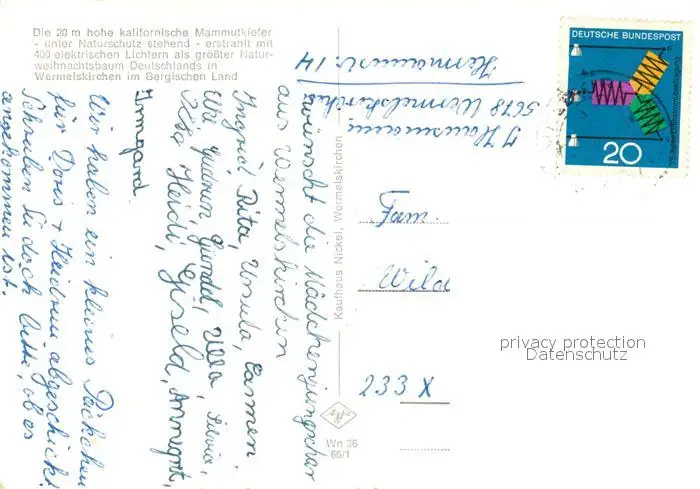 Die 20 m hohe kalifornische Mammutkiefer
- unter Naturschutz stehend - erstrahlt mit
400 elektrischen Lichtern als größter Natur-
weihnachtsbaum Deutschlands in
Wermelskirchen im Bergischen Land
wünscht die Mädchenjungschar
aus Wermelskirchen
Ingrid, Rita, Ursula, Carmen,
Elke, Gudrun, Gundel, Ulla, Silvia,
Heidi, Gisela, Annegret,
Irmgard
Wir haben ein kleines Päckchen
für Doris + Heidrun abgeschickt.
Schreiben Sie doch bitte, ob es
angekommen ist.
Kaufhaus Nickel, Wermelskirchen
Wn 36
66/1
5678 Wermelskirchen
14
DEUTSCHE BUNDESPOST
20
Fam.
Wild
233 X
privacy protection
Datenschutz